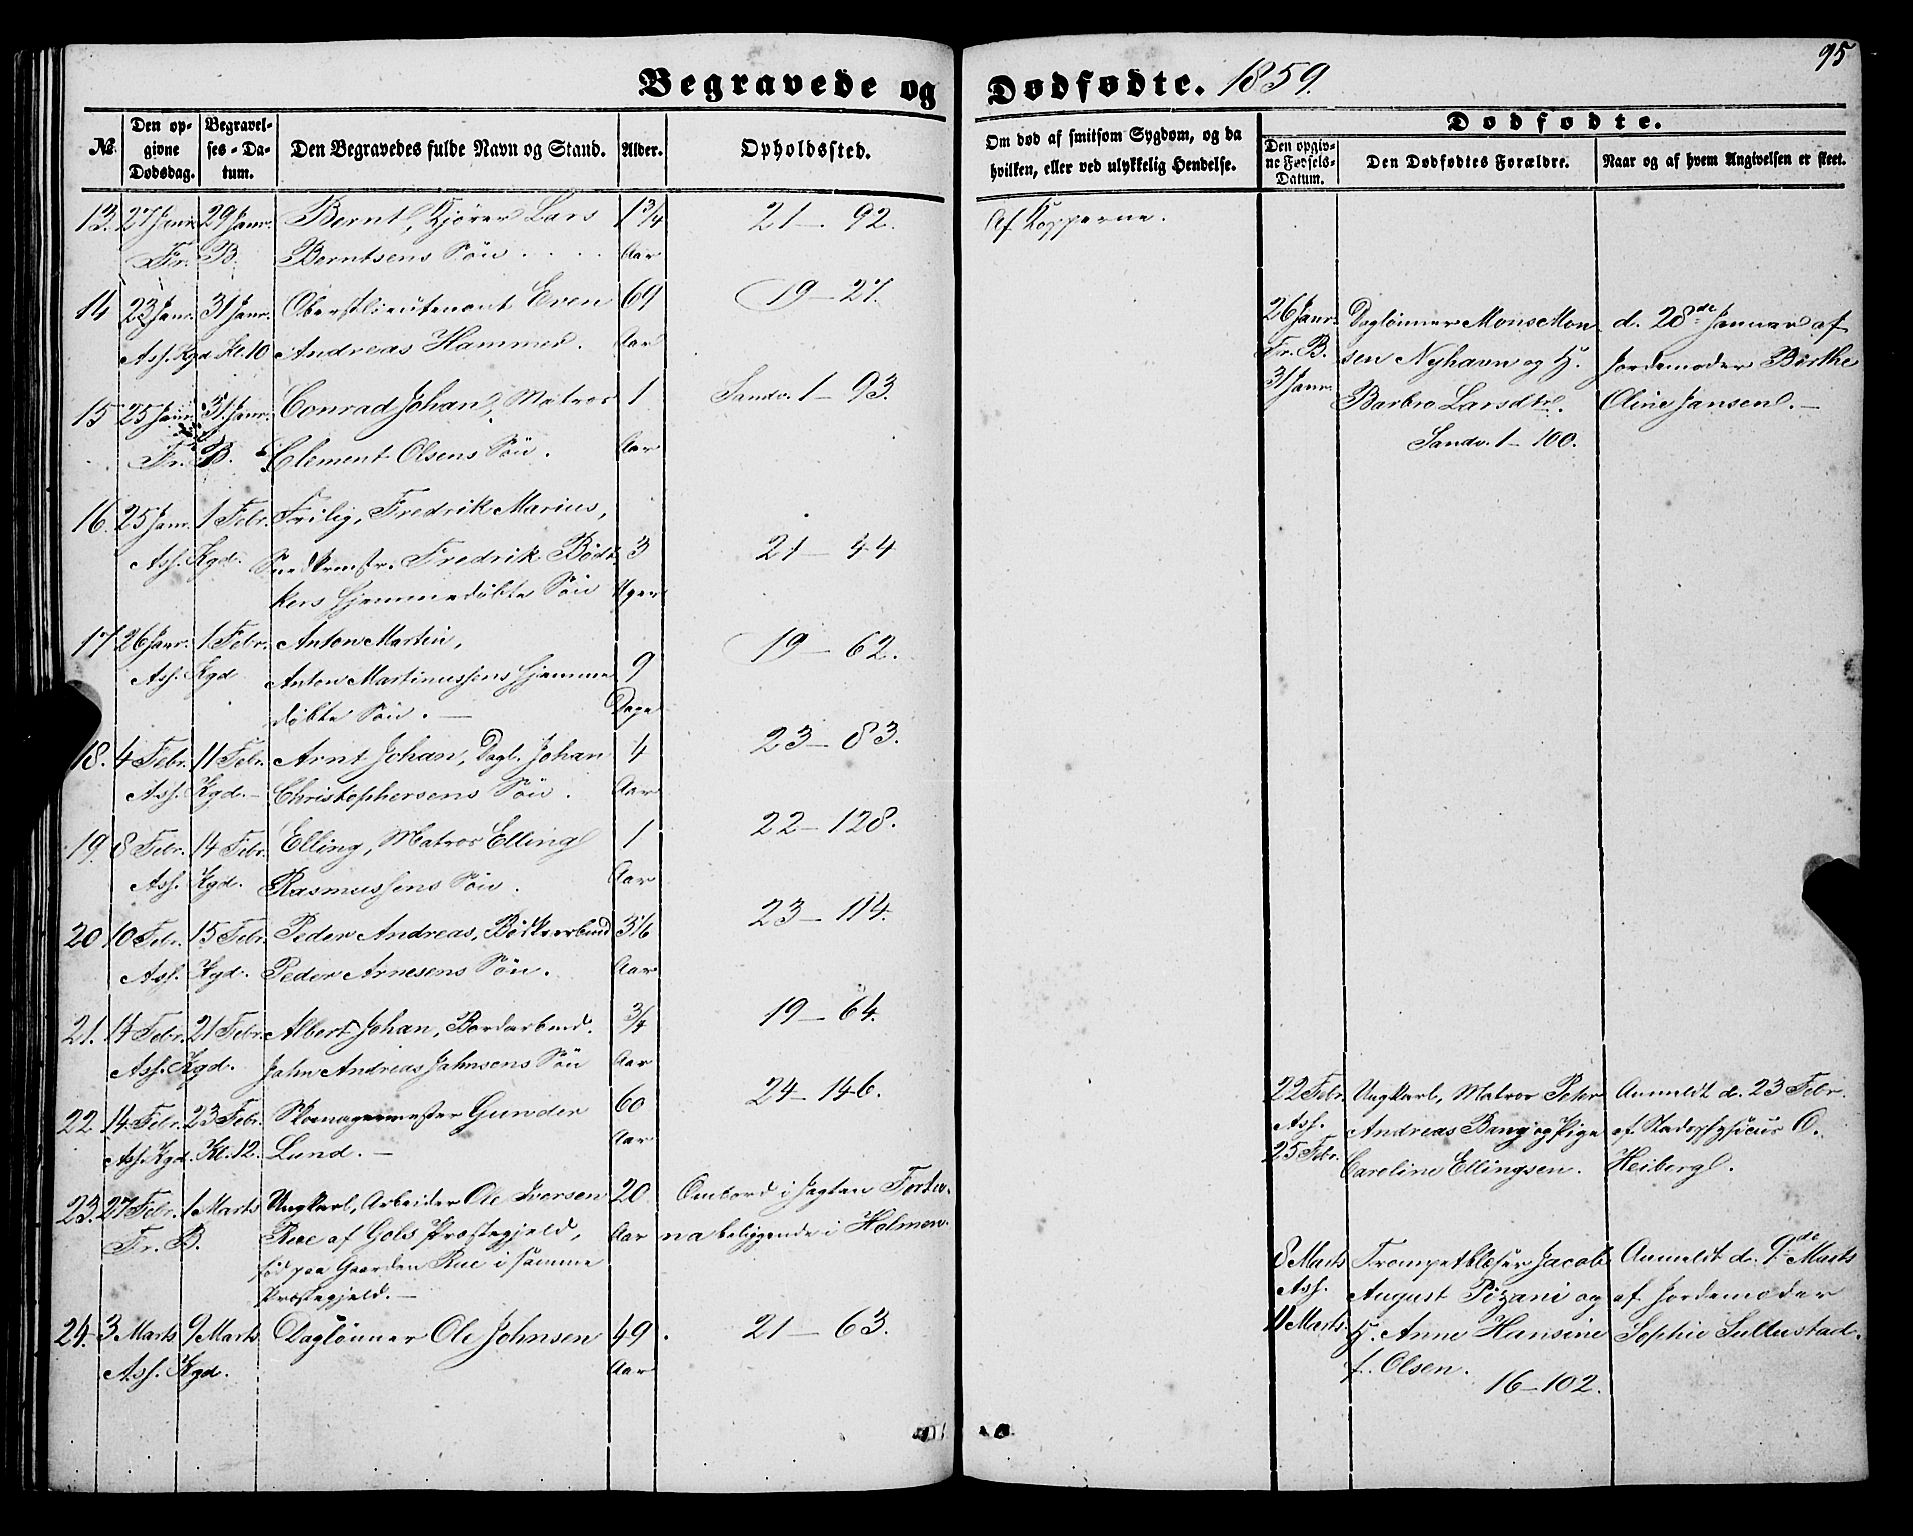 95
Begravede og Dødfødte. 1859.
№.
Den opgivne Dødsdag.
Begravelses-Datum.
Den Begravedes fulde Navn og Stand.
Alder.
Opholdssted.
Om død af smitsom Sygdom, og da hvilken, eller ved ulykkelig Hendelse.
Dødfødte.
Den opgivne Fødsels-Datum.
Den Dødfødtes Forældre.
Naar og af hvem Angivelsen er skeet.
13. 27 Janr. 29 Janr. Bernt, Kjører Lars 1 3/4 21 – 92. Af Kopperne.
Fr. B. Berntsens Søn . . . . Aar
14 23 Janr. 31 Janr. Oberstlieutenant Even 69 19 – 27.
Ass. Kgd. Kl. 10 Andreas Hammer. Aar
15 25 Janr. 31 Janr. Conrad Johan, Matros 1 Sandv. 1 – 93.
Fr. B. Clement Olsens Søn. Aar
16. 25 Janr. 1 Febr. Frilig, Fredrik Marius,
Ass. Kgd. Fredrik Bødt- 3 21 – 44
kers hjemmedøbte Søn Uger
17 26 Janr. 1 Febr. Anton Martin, 19 – 62.
Ass. Kgd Anton Martinussens hjemme 9
døbte Søn. – Dage
18. 4 Febr. 11 Febr. Arnt Johan, Dagl. Johan 4 23 – 83.
Ass. Kgd. – Christophersens Søn. Aar
19 8 Febr. 14 Febr. Elling, Matros Elling 1 22 – 128.
Ass. Kgd. Rasmussens Søn. Aar
20 10 Febr. 15 Febr. Peder Andreas, Bødkerarbeid 3 1/6 23 – 114.
Ass. Kgd. Peder Arnesens Søn. Aar
21. 14 Febr. 21 Febr. Albert Johan, Bordarbeid. 3/4 19 – 64.
Ass. Kgd. John Andreas Johnsens Søn Aar
22 14 Febr. 23 Febr. Skomagermester Gunder 60 24 – 146.
Ass. Kgd. Kl. 12. Lund. – Aar
23. 27 Febr. 1 Marts Ungkarl, Arbeider Ole Iversen 20 Ombord i Jagten Fortu-
Fr. B. Rue af Gols Præstegjeld, Aar na beliggende i Holmen.
fød paa Gaarden Rue i samme
Præstegjeld. –
24 3 Marts 9 Marts Daglønner Ole Johnsen 49 21 – 63.
Ass. Kgd. Aar
26 Janr. Daglønner Mons Mon- d. 28de Januar af
Fr. B. sen Nyhavn og H. Jordemoder Birthe
31 Janr. Barbro Larsdtr. Oline Jansen. –
Sandv. 1 – 100.
22 Febr. Ungkarl, Matros Peter Anmeldt d. 23 Febr.
Ass. Andreas Bang og Pige af Stadsphysicus O.
25 Febr. Caroline Ellingsen. Heiberg.
8 Marts Trompetblæser Jacob Anmeldt d. 9de Marts
Ass. August Pizani og af Jordemoder
11 Marts. H. Anne Hansine Sophie Sullustad.
f. Olsen.
16 – 102.